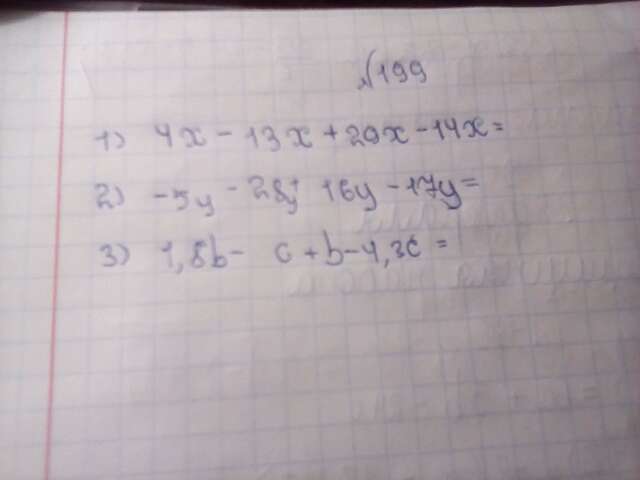 √199
1) 4x - 13x + 29x - 14x =
2) -5y - 28y 16y - 17y =
3) 1,8b - c + b - 4,3c =